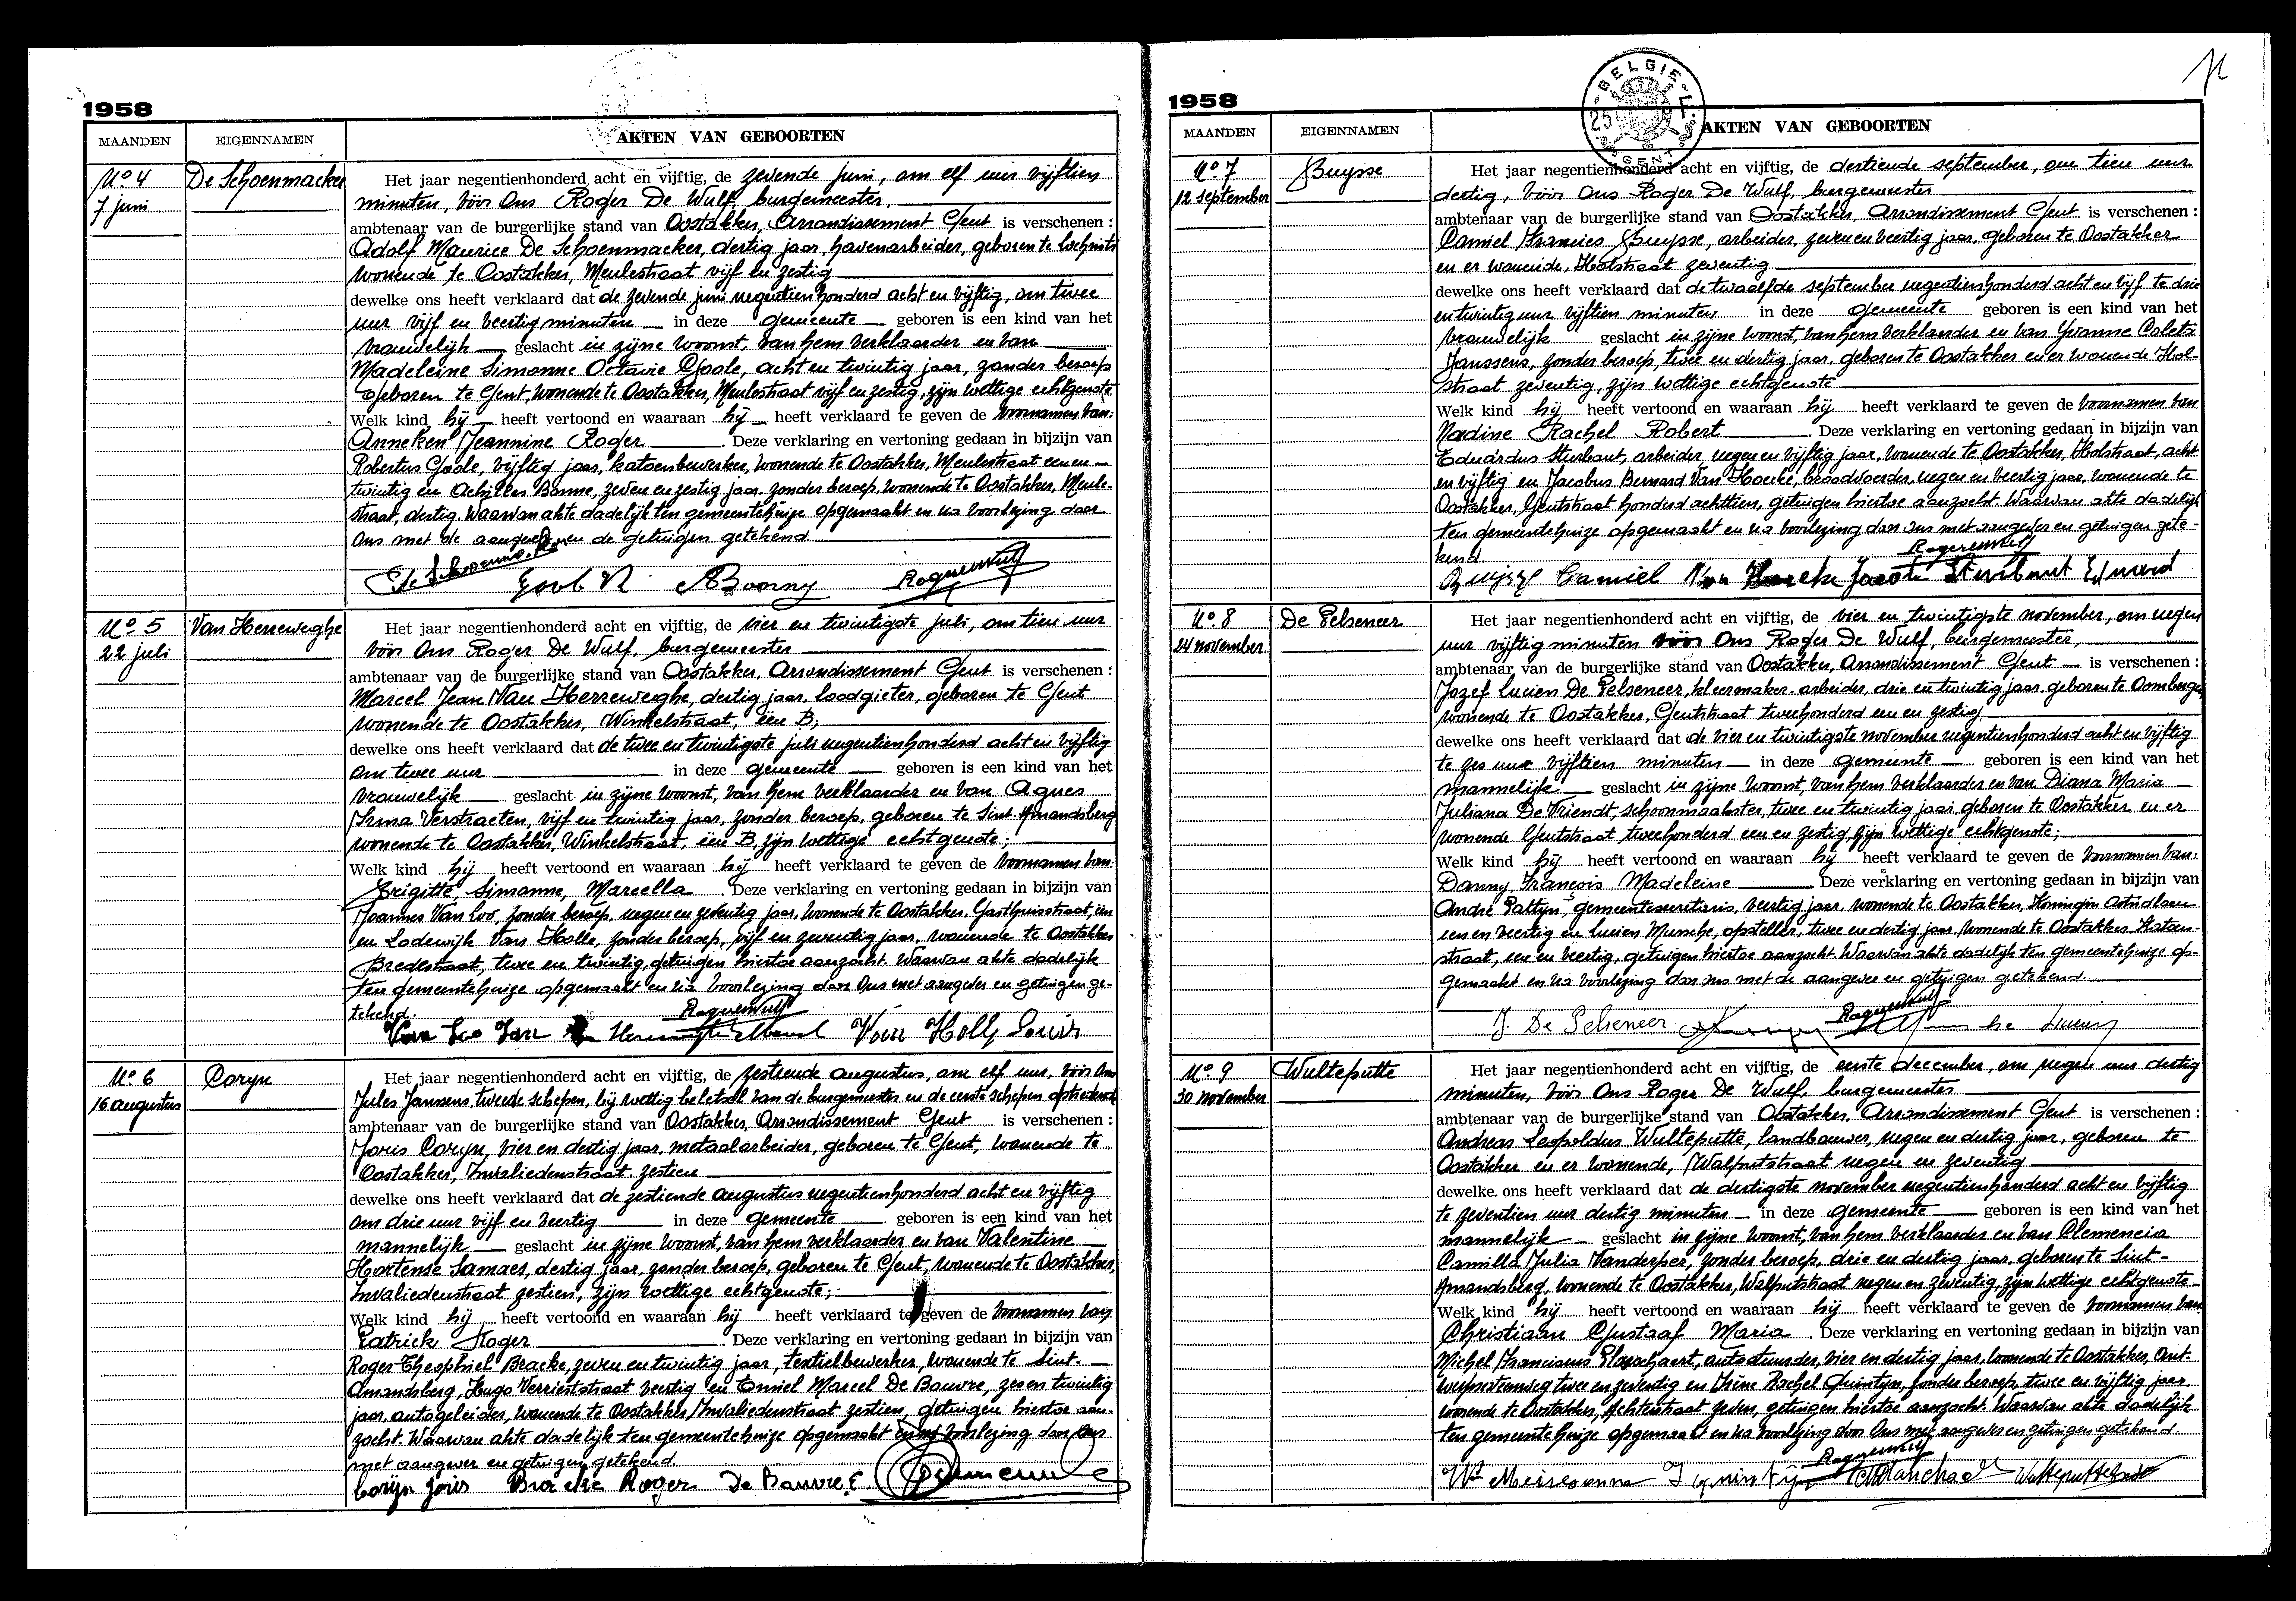 1958
MAANDEN EIGENNAMEN AKTEN VAN GEBOORTEN
No 4
7 juni
De Schoenmacker
Het jaar negentienhonderd acht en vijftig, de zevende juni, om elf uur vijftien
minuten, vóór Ons Roger De Wulf, burgemeester,
ambtenaar van de burgerlijke stand van Oostakker, Arrondissement Gent is verschenen :
Adolf Maurice De Schoenmacker, dertig jaar, havenarbeider, geboren te
wonende te Oostakker, Meulestraat vijf en zestig
dewelke ons heeft verklaard dat de zevende juni negentienhonderd acht en vijftig, om twee
uur vijf en veertig minuten in deze gemeente geboren is een kind van het
vrouwelijk geslacht in zijne woonst, van hem verklaarder en van
Madeleine Simonne Octavie Goole, acht en twintig jaar, zonder beroep
geboren te Gent, wonende te Oostakker, Meulestraat vijf en zestig, zijn wettige echtgenote
Welk kind hij heeft vertoond en waaraan hij heeft verklaard te geven de voornamen van:
Anneken Jeannine Roger . Deze verklaring en vertoning gedaan in bijzijn van
Robertus Goole, vijftig jaar, katoenbewerker, wonende te Oostakker, Meulestraat een en
twintig en Achilles Bonne, zeven en zestig jaar, zonder beroep, wonende te Oostakker, Meule-
straat, dertig. Waarvan akte dadelijk ten gemeentehuize opgemaakt en na voorlezing door
Ons met de aangever en de getuigen getekend
No 5
22 juli
Van Herreweghe
Het jaar negentienhonderd acht en vijftig, de vier en twintigste juli, om tien uur
vóór Ons Roger De Wulf, burgemeester
ambtenaar van de burgerlijke stand van Oostakker, Arrondissement Gent is verschenen :
Marcel Jean Van Herreweghe, dertig jaar, loodgieter, geboren te Gent
wonende te Oostakker, Winkelstraat, één B;
dewelke ons heeft verklaard dat de twee en twintigste juli negentienhonderd acht en vijftig
om twee uur in deze gemeente geboren is een kind van het
vrouwelijk geslacht in zijne woonst, van hem verklaarder en van Agnes
Irma Verstraeten, vijf en twintig jaar, zonder beroep, geboren te Sint-Amandsberg
wonende te Oostakker, Winkelstraat, één B, zijn wettige echtgenote;
Welk kind hij heeft vertoond en waaraan hij heeft verklaard te geven de voornamen van:
Brigitte, Simonne, Marcella . Deze verklaring en vertoning gedaan in bijzijn van
Joannes Van Loo, zonder beroep, negen en zeventig jaar, wonende te Oostakker, Gasthuisstraat, één
en Lodewijk Van Holle, zonder beroep, vijf en zeventig jaar, wonende te Oostakker
Bredestraat, twee en twintig, getuigen hiertoe aanzocht. Waarvan akte dadelijk
ten gemeentehuize opgemaakt en na voorlezing door Ons met aangever en getuigen ge-
tekend.
Van Loo Jan
No 6
16 augustus
Coryn
Het jaar negentienhonderd acht en vijftig, de zestiende augustus, om elf uur, vóór Ons
Jules Janssens, tweede schepen, bij wettig beletsel van de burgemeester en de eerste schepen optredend
ambtenaar van de burgerlijke stand van Oostakker, Arrondissement Gent is verschenen :
Joris Coryn, vier en dertig jaar, metaalarbeider, geboren te Gent, wonende te
Oostakker, Invaliedenstraat zestien
dewelke ons heeft verklaard dat de zestiende augustus negentienhonderd acht en vijftig
om drie uur vijf en veertig in deze gemeente geboren is een kind van het
mannelijk geslacht in zijne woonst, van hem verklaarder en van Valentine
Hortense Samaes, dertig jaar, zonder beroep, geboren te Gent, wonende te Oostakker,
Invaliedenstraat zestien, zijn wettige echtgenote;
Welk kind hij heeft vertoond en waaraan hij heeft verklaard te geven de voornamen van
Patrick Roger . Deze verklaring en vertoning gedaan in bijzijn van
Roger Theophiel Bracke, zeven en twintig jaar, textielbewerker, wonende te Sint-
Amandsberg, Hugo Verrieststraat veertig en Emiel Marcel De Bouvre, zes en twintig
jaar, autogeleider, wonende te Oostakker, Invaliedenstraat zestien, getuigen hiertoe aan-
zocht. Waarvan akte dadelijk ten gemeentehuize opgemaakt en na voorlezing door Ons
met aangever en getuigen getekend.
Coryn Joris Bracke Roger De Bouvre E
1958
BELGIE
GENT
MAANDEN EIGENNAMEN AKTEN VAN GEBOORTEN
No 7
12 september
Buysse
Het jaar negentienhonderd acht en vijftig, de dertiende september, om tien uur
dertig, vóór Ons Roger De Wulf, burgemeester
ambtenaar van de burgerlijke stand van Oostakker, Arrondissement Gent is verschenen :
Camiel Francies Buysse, arbeider, zeven en veertig jaar, geboren te Oostakker
en er wonende, Holstraat zeventig
dewelke ons heeft verklaard dat de twaalfde september negentienhonderd acht en vijf te drie
en twintig uur vijftien minuten in deze gemeente geboren is een kind van het
vrouwelijk geslacht in zijne woonst, van hem verklaarder en van Yvonne Coleta
Janssens, zonder beroep, twee en dertig jaar, geboren te Oostakker en er wonende Hol-
straat zeventig, zijn wettige echtgenote
Welk kind hij heeft vertoond en waaraan hij heeft verklaard te geven de voornamen van
Nadine Rachel Robert . Deze verklaring en vertoning gedaan in bijzijn van
Eduardus Sturbaut, arbeider, negen en vijftig jaar, wonende te Oostakker, Holstraat, acht
en vijftig en Jacobus Bernard Van Hoecke, broodvoerder, negen en veertig jaar, wonende te
Oostakker, Gentstraat honderd achttien, getuigen hiertoe aanzocht. Waarvan akte dadelijk
ten gemeentehuize opgemaakt en na voorlezing door Ons met aangever en getuigen gete-
kend
Buysse Camiel
No 8
24 november
De Pelseneer
Het jaar negentienhonderd acht en vijftig, de vier en twintigste november, om negen
uur vijftig minuten vóór Ons Roger De Wulf, burgemeester,
ambtenaar van de burgerlijke stand van Oostakker, Arrondissement Gent is verschenen :
Jozef Lucien De Pelseneer, kleermaker-arbeider, drie en twintig jaar, geboren te Oombergen
wonende te Oostakker, Gentstraat tweehonderd een en zestig
dewelke ons heeft verklaard dat de vier en twintigste november negentienhonderd acht en vijftig
te zes uur vijftien minuten in deze gemeente geboren is een kind van het
mannelijk geslacht in zijne woonst, van hem verklaarder en van Diana Maria
Juliana De Vriendt, schoonmaakster, twee en twintig jaar, geboren te Oostakker en er
wonende Gentstraat tweehonderd een en zestig, zijn wettige echtgenote;
Welk kind hij heeft vertoond en waaraan hij heeft verklaard te geven de voornamen van:
Danny, François Madeleine . Deze verklaring en vertoning gedaan in bijzijn van
André Pattyn, gemeentesecretaris, veertig jaar, wonende te Oostakker, Koningin Astridlaan
een en veertig en Lucien Mussche, opsteller, twee en dertig jaar, wonende te Oostakker,
straat, een en veertig, getuigen hiertoe aanzocht. Waarvan akte dadelijk ten gemeentehuize op-
gemaakt en na voorlezing door ons met de aangever en getuigen getekend.
J. De Pelseneer
No 9
30 november
Wulteputte
Het jaar negentienhonderd acht en vijftig, de eerste december, om negen uur dertig
minuten, vóór Ons Roger De Wulf, burgemeester
ambtenaar van de burgerlijke stand van Oostakker, Arrondissement Gent is verschenen :
Andreas Leopoldus Wulteputte, landbouwer, negen en dertig jaar, geboren te
Oostakker en er wonende, Walputstraat negen en zeventig
dewelke ons heeft verklaard dat de dertigste november negentienhonderd acht en vijftig
te zeventien uur dertig minuten in deze gemeente geboren is een kind van het
mannelijk geslacht in zijne woonst, van hem verklaarder en van Clemencia
Camilla Julia Vanderper, zonder beroep, drie en dertig jaar, geboren te Sint-
Amandsberg, wonende te Oostakker, Walputstraat negen en zeventig, zijn wettige echtgenote
Welk kind hij heeft vertoond en waaraan hij heeft verklaard te geven de voornamen van
Christiaan Gustaaf Maria . Deze verklaring en vertoning gedaan in bijzijn van
Michel Franciscus autostuurder, vier en dertig jaar, wonende te Oostakker, Ant-
werpsesteenweg twee en zeventig en Irène Rachel Quintyn, zonder beroep, twee en vijftig jaar,
wonende te Oostakker, Achterstraat zeven, getuigen hiertoe aanzocht. Waarvan akte dadelijk
ten gemeentehuize opgemaakt en na voorlezing door Ons met aangever en getuigen getekend.